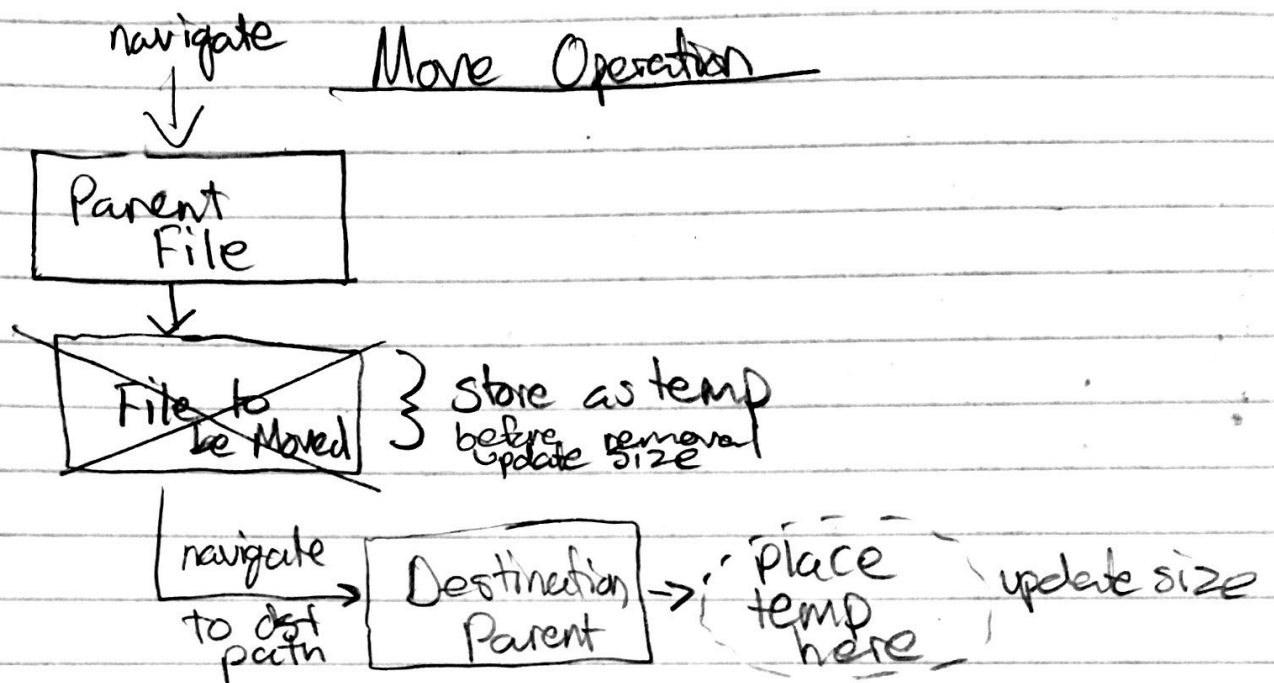 navigate
Move Operation
Parent
File
File to
be Moved
store as temp
before removal
update size
navigate
to dst
path
Destination
Parent
place
temp
here
update size